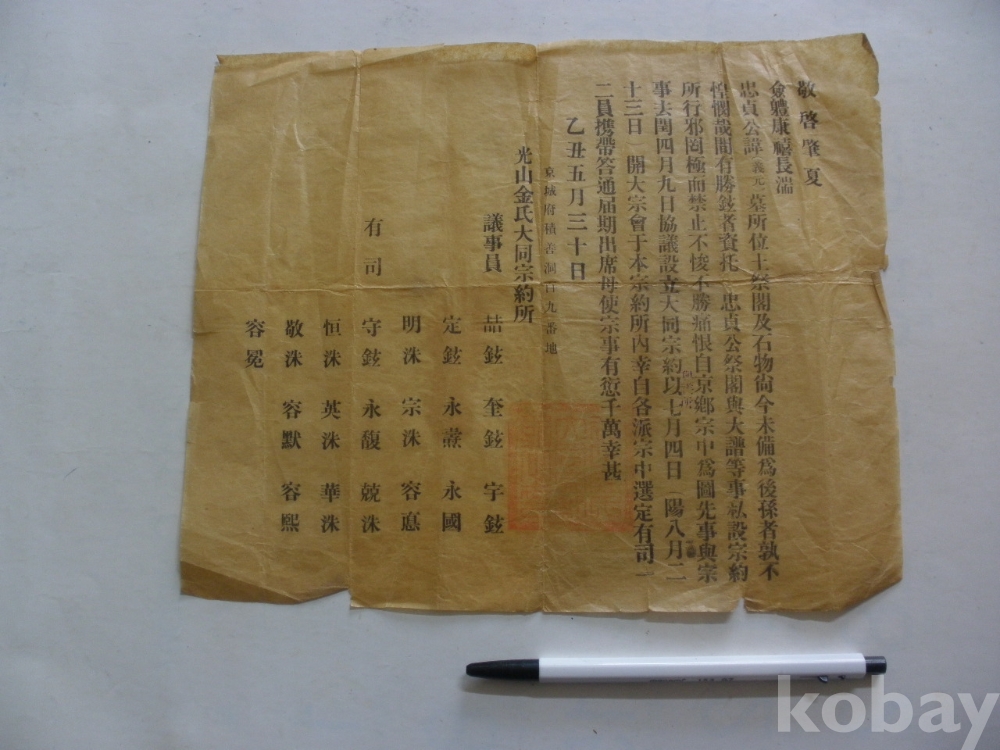 敬啓肇夏
僉軆康禧長濡
忠貞公諱(義元)墓所位土祭閣及石物尙今未備爲後孫者孰不
惶憫哉間有勝鉉者資托 忠貞公祭閣與大譜等事私設宗約
所行邪罔極而禁止不悛不勝痛恨自京鄕宗中爲圖先事與宗
事去閏四月九日協議設立大同宗約以七月四日(陽八月二
十三日)開大宗會于本宗約所內幸自各派宗中選定有司一
二員携帶答通屆期出席毋使宗事有愆千萬幸甚
乙丑五月三十日
京城府積善洞百九番地
光山金氏大同宗約所
議事員 喆鉉 奎鉉 宇鉉
定鉉 永 永國
明洙 宗洙 容悳
有司 守鉉 永馥 兢洙
恒洙 英洙 華洙
敬洙 容默 容熙
容冕
kobay